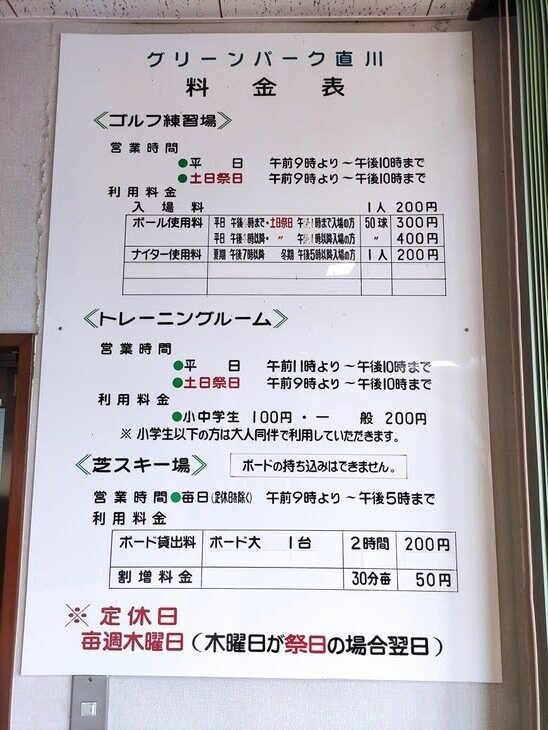 グリーンパーク直川
料金表
《ゴルフ練習場》
営業時間
●平日 午前9時より～午後10時まで
●土日祭日 午前9時より～午後10時まで
利用料金
入場料 1人 200円
ボール使用料 平日 午後 時まで・土日祭日 午 時まで入場の方 50球 300円
平日 午後 時以降・ 〃 午 時以降入場の方 〃 400円
ナイター使用料 夏期 午後7時以降 冬期 午後5時以降入場の方 1人 200円
《トレーニングルーム》
営業時間
●平日 午前11時より～午後10時まで
●土日祭日 午前9時より～午後10時まで
利用料金
●小中学生 100円・一般 200円
※小学生以下の方は大人同伴で利用していただきます。
《芝スキー場》 ボードの持ち込みはできません。
営業時間●毎日(定休日を除く) 午前9時より～午後5時まで
利用料金
ボード貸出料 ボード大 1台 2時間 200円
割増料金 30分毎 50円
※定休日
毎週木曜日(木曜日が祭日の場合翌日)